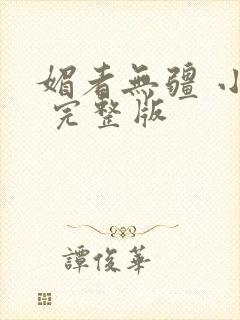 媚者無疆 小
完整版
譚俊華